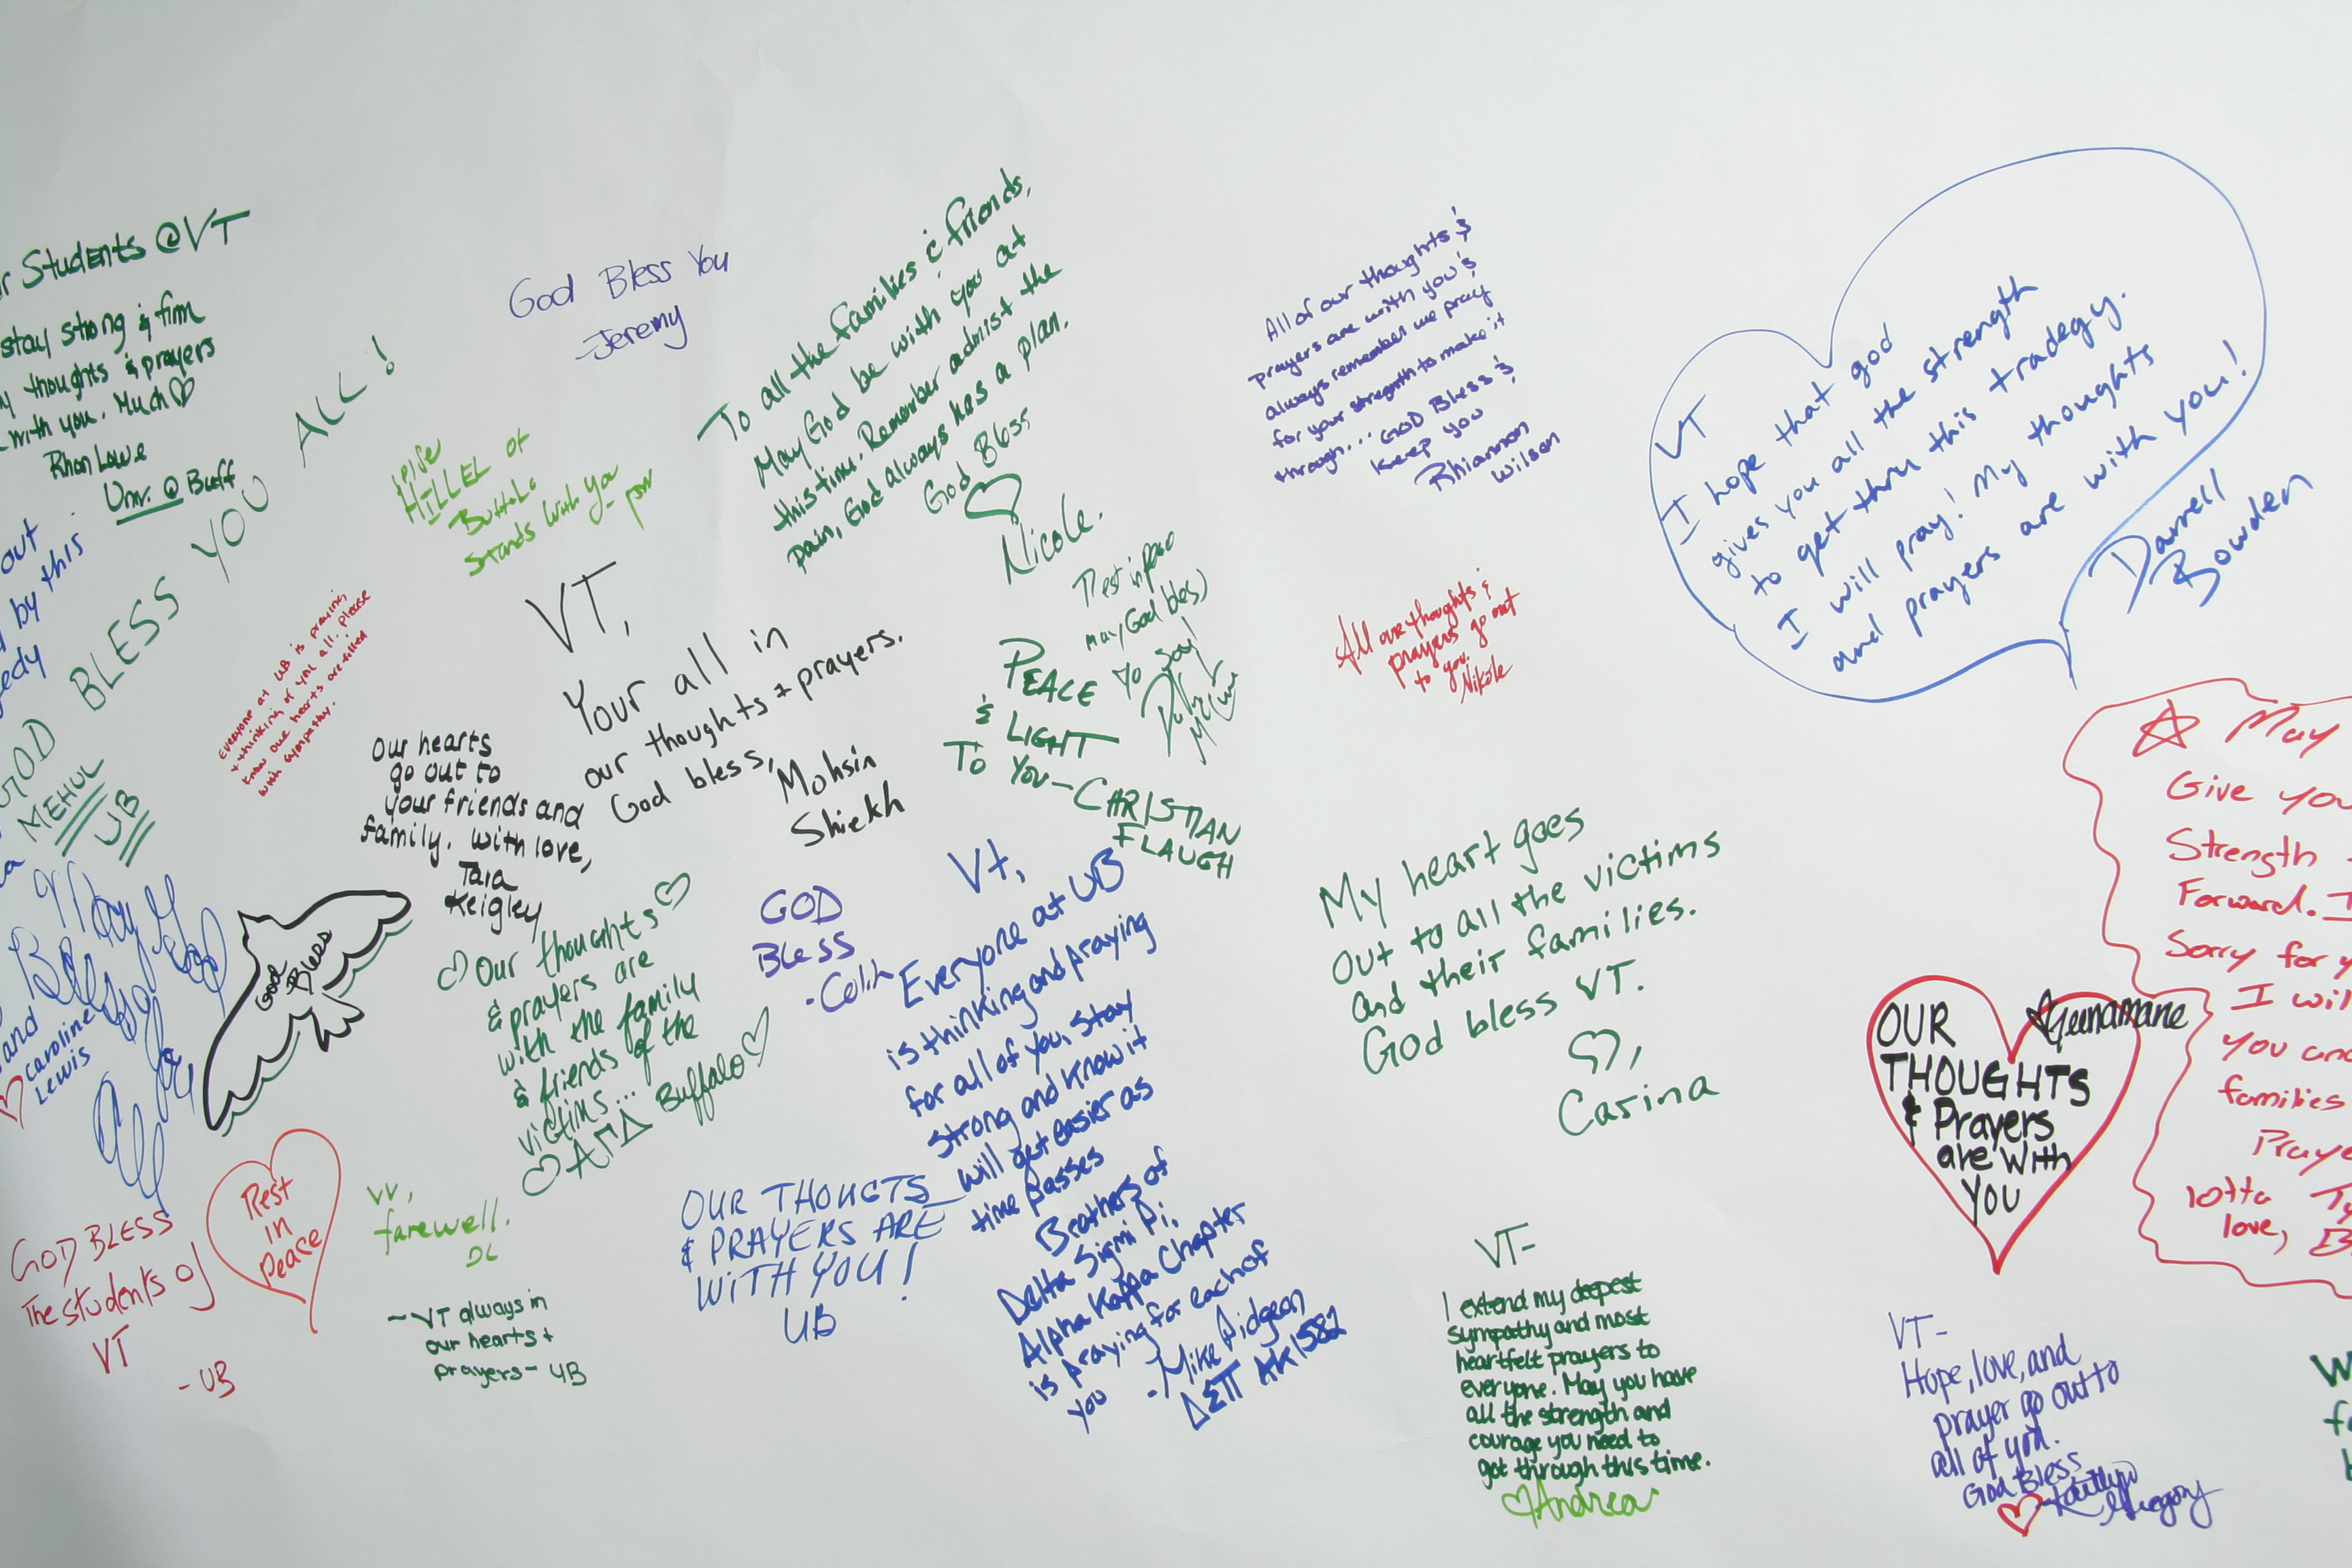 Students @VT
stay strong & firm
thoughts & prayers
with you. Much
Rhan Lowe
Univ. @ Buff
out
by this
GOD BLESS YOU ALL!
MEHUL
UB
God Bless You
-Jeremy
HILLEL of
Buffalo
Stands with you
Everyone at UB is praying
+ thinking of you all. please
know our hearts are filled
with sympathy.
To all the families & friends,
May God be with you at
this time. Remember admist the
pain, God always has a plan.
God Bless
Nicole.
VT,
Your all in
our thoughts + prayers.
God bless,
Mohsin
Shiekh
Our hearts
go out to
your friends and
family. with love,
Tara
Keigley
Rest in peace
may God bless
yo soul
PEACE
&
LIGHT
TO YOU - CHRISTIAN
FLAUGH
All of our thoughts &
prayers are with you &
always remember we pray
for your stregnth to make it
through... GOD Bless &
keep you
Rhiannon
Wilson
All our thoughts &
prayers go out
to you.
Nikole
VT
I hope that god
gives you all the strength
to get thru this tradegy.
I will pray! My thoughts
and prayers are with you!
Darrell
Bowden
May God
Bless
and
Caroline
Lewis
God
Bless
Our thoughts
& prayers are
with the family
& friends of the
victims...
ΑΓΔ Buffalo
GOD
BLESS
-Colin
Vt,
Everyone at UB
is thinking and praying
for all of you, Stay
Strong and know it
will get easier as
time passes
Brothers of
Delta Sigmi Pi,
Alpha Kappa Chapter
is praying for each of
you
-Mike Pidgeon
ΔΣΠ AK1582
My heart goes
out to all the victims
and their families.
God bless VT.
Carina
May
Give you
Strength
Forward. I
Sorry for
I will
you and
families
lotta
love,
OUR
THOUGHTS
& Prayers
are with
YOU
GOD BLESS
The students of
VT
-UB
Rest
in
Peace
farewell.
DC
~VT always in
our hearts +
prayers- UB
OUR THOUGTS
& PRAYERS ARE
WITH YOU!
UB
VT-
I extend my deepest
sympathy and most
heartfelt prayers to
everyone. May you have
all the strength and
courage you need to
get through this time.
Andrea
VT-
Hope, love, and
prayer go out to
all of you.
God Bless
Kaitlyn
Gregory